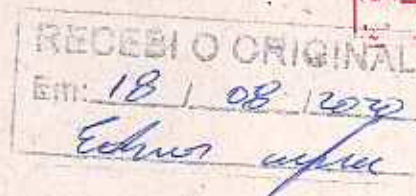 RECEBI O ORIGINAL
Em: 18 / 08 / 2020